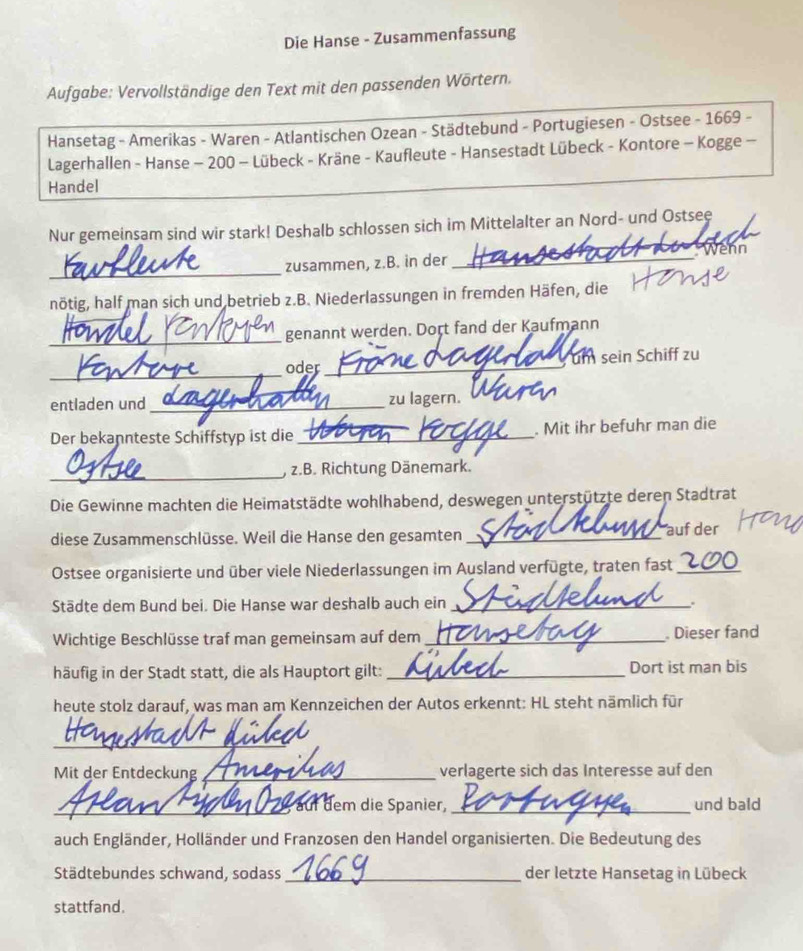 Die Hanse - Zusammenfassung
Aufgabe: Vervollständige den Text mit den passenden Wörtern.
Hansetag - Amerikas - Waren - Atlantischen Ozean - Städtebund - Portugiesen - Ostsee - 1669 -
Lagerhallen - Hanse – 200 – Lübeck - Kräne - Kaufleute - Hansestadt Lübeck - Kontore – Kogge –
Handel
Nur gemeinsam sind wir stark! Deshalb schlossen sich im Mittelalter an Nord- und Ostsee
Kaufleute zusammen, z.B. in der Hansestadt Lübeck. Wenn
nötig, half man sich und betrieb z.B. Niederlassungen in fremden Häfen, die Hanse
Handel Kontoren genannt werden. Dort fand der Kaufmann
Kontore oder Kräne Lagerhallen, um sein Schiff zu
entladen und Lagerhallen zu lagern. Waren
Der bekannteste Schiffstyp ist die Waren Kogge. Mit ihr befuhr man die
Ostsee, z.B. Richtung Dänemark.
Die Gewinne machten die Heimatstädte wohlhabend, deswegen unterstützte deren Stadtrat
diese Zusammenschlüsse. Weil die Hanse den gesamten Städtebund auf der Hand
Ostsee organisierte und über viele Niederlassungen im Ausland verfügte, traten fast 200
Städte dem Bund bei. Die Hanse war deshalb auch ein Städtebund.
Wichtige Beschlüsse traf man gemeinsam auf dem Hansetag. Dieser fand
häufig in der Stadt statt, die als Hauptort gilt: Lübeck Dort ist man bis
heute stolz darauf, was man am Kennzeichen der Autos erkennt: HL steht nämlich für
Hansestadt Lübeck
Mit der Entdeckung Amerikas verlagerte sich das Interesse auf den
Atlantischen Ozean, auf dem die Spanier, Portugiesen und bald
auch Engländer, Holländer und Franzosen den Handel organisierten. Die Bedeutung des
Städtebundes schwand, sodass 1669 der letzte Hansetag in Lübeck
stattfand.